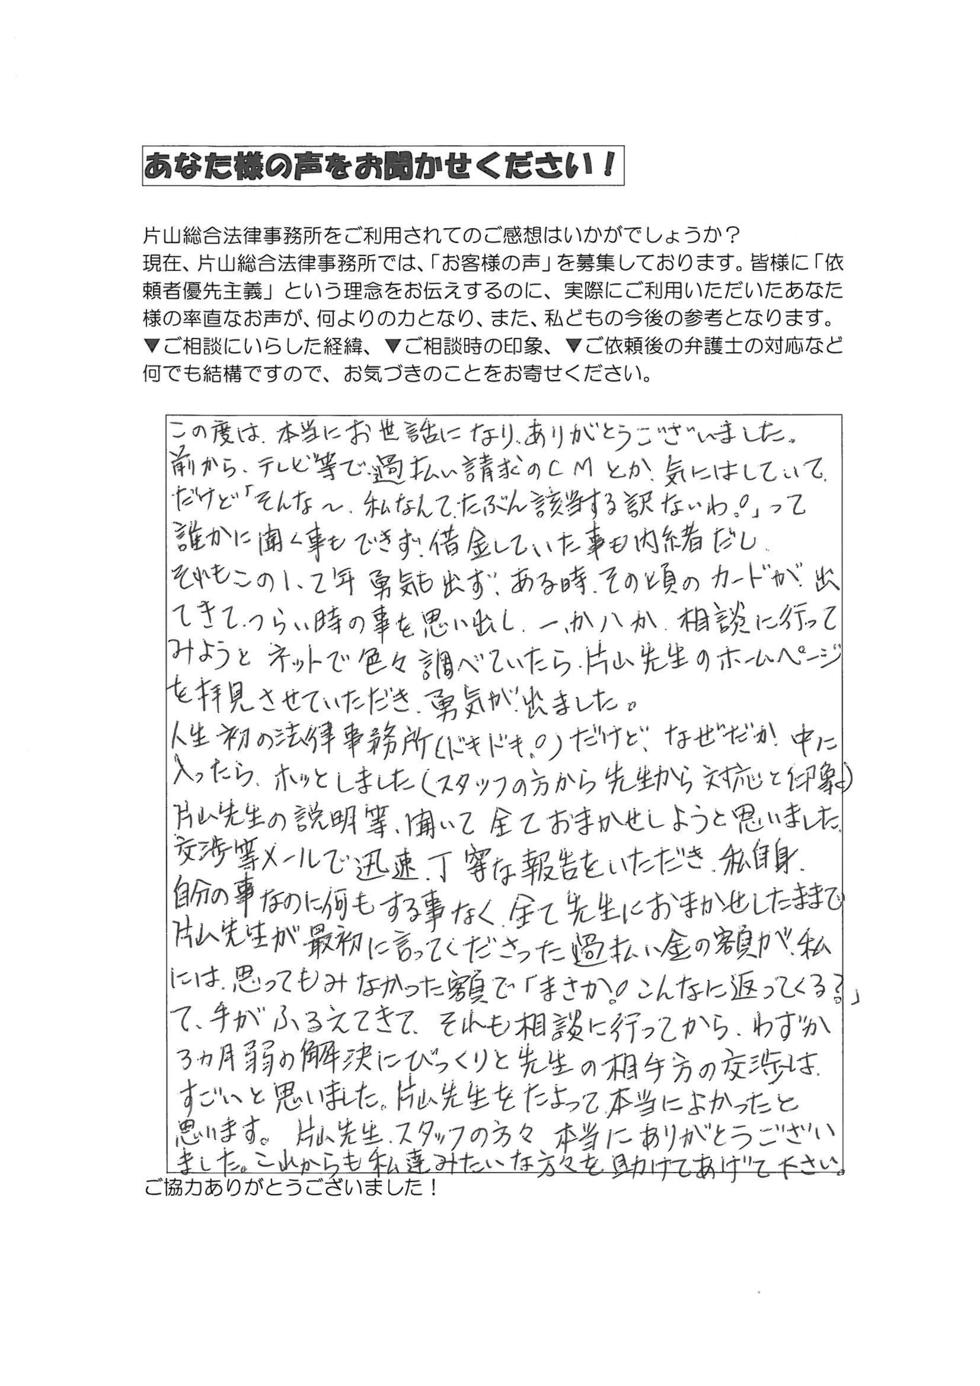 あなた様の声をお聞かせください！
片山総合法律事務所をご利用されてのご感想はいかがでしょうか？
現在、片山総合法律事務所では、「お客様の声」を募集しております。皆様に「依
頼者優先主義」という理念をお伝えするのに、実際にご利用いただいたあなた
様の率直なお声が、何よりの力となり、また、私どもの今後の参考となります。
▼ご相談にいらした経緯、▼ご相談時の印象、▼ご依頼後の弁護士の対応など
何でも結構ですので、お気づきのことをお寄せください。
この度は、本当にお世話になり、ありがとうございました。
前から、テレビ等で、過払い請求のCMとか、気にはしていて、
だけど「そんな～、私なんて、たぶん該当する訳ないわ。」って
誰かに聞く事もできず、借金していた事も内緒だし、
それもこの1、2年勇気も出ず、ある時、その頃のカードが、出
てきて、つらい時の事を思い出し、一か八か、相談に行って
みようと ネットで色々調べていたら、片山先生のホームページ
を拝見させていただき、勇気が出ました。
人生初の法律事務所(ドキドキ。)だけど、なぜだか、中に
入ったら、ホッとしました(スタッフの方から先生から対応と印象)
片山先生の説明等、聞いて全ておまかせしようと思いました。
交渉等メールで迅速、丁寧な報告をいただき、私自身、
自分の事なのに何もする事なく、全て先生におまかせしたままで
片山先生が最初に言ってくださった過払い金の額が、私
には、思ってもみなかった額で「まさか！こんなに返ってくる？」
て、手がふるえてきて、それも相談に行ってから、わずか
3ヵ月弱の解決にびっくりと先生の相手方の交渉は、
すごいと思いました。片山先生をたよって、本当によかったと
思います。片山先生、スタッフの方々、本当にありがとうござい
ました。これからも私達みたいな方々を助けてあげて下さい。
ご協力ありがとうございました！